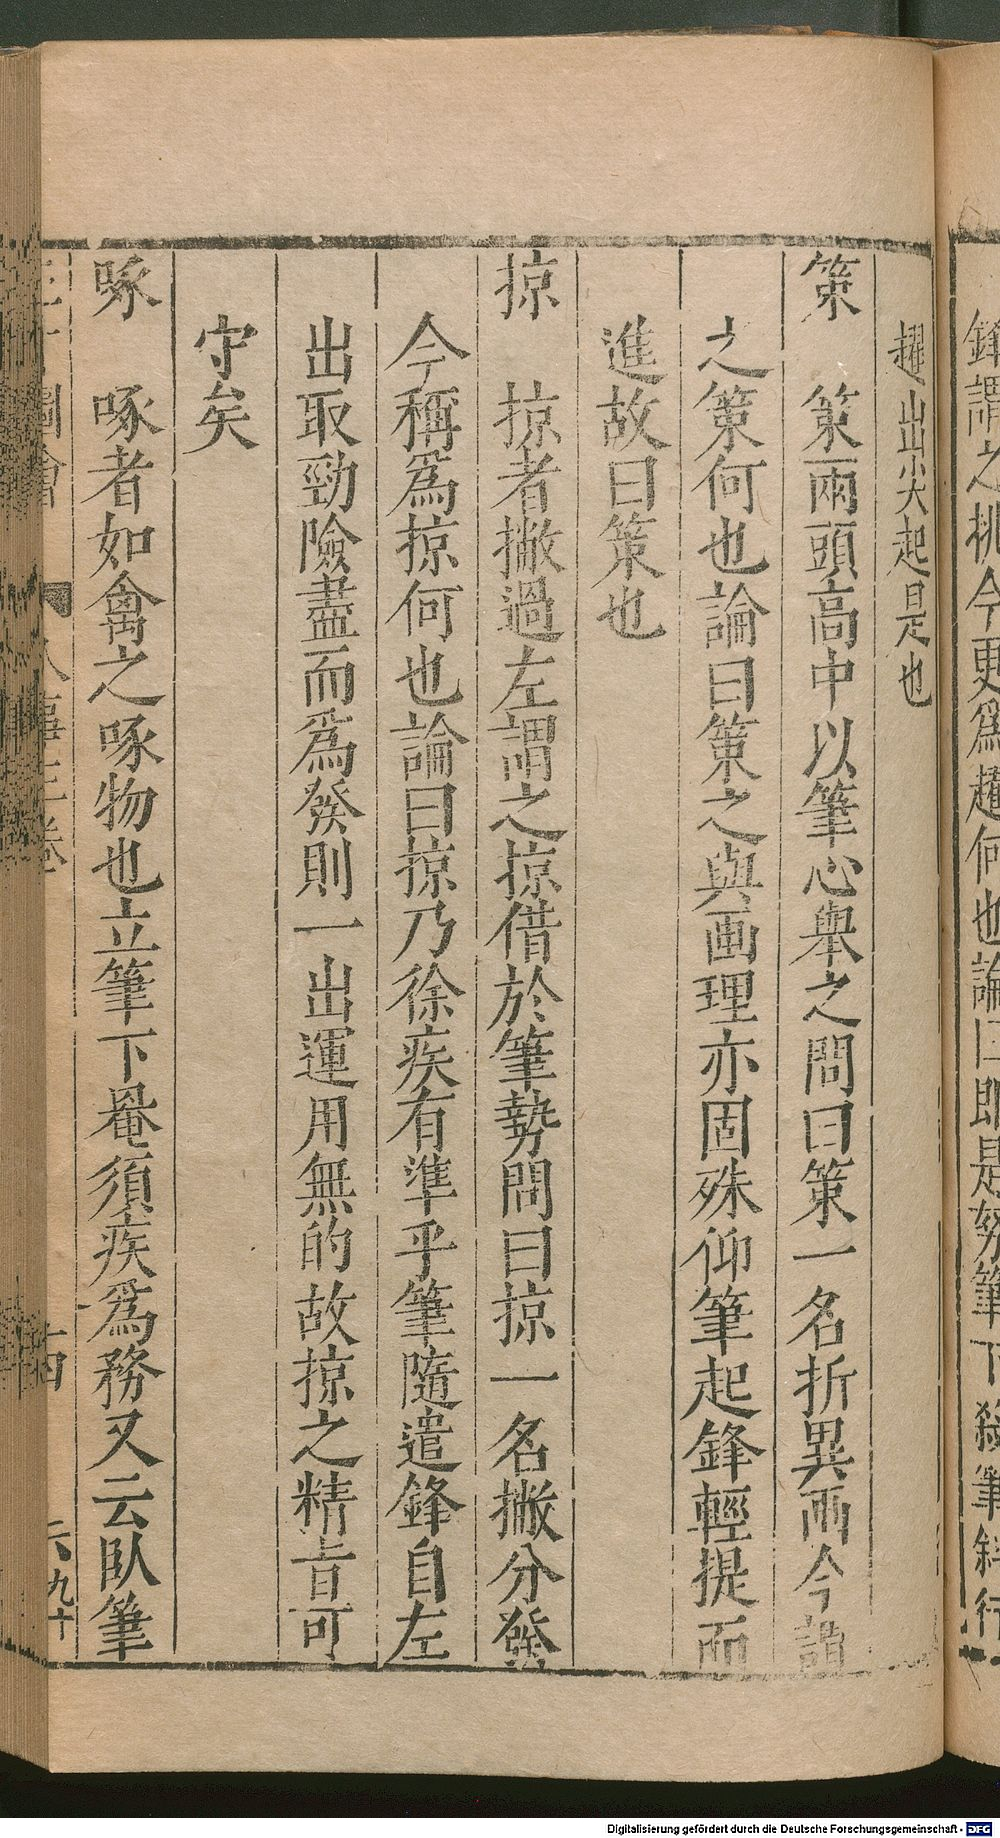 鋒謂之挑今更爲趯何也論曰即是努筆下殺筆斜行
趯出尖起是也
策　策兩頭高中以筆心舉之問曰策一名折異畫今謂
之策何也論曰策之與画理亦固殊仰筆起鋒輕提而
進故曰策也
掠　掠者撇過左謂之掠借於筆勢問曰掠一名撇分發
今稱爲掠何也論曰掠乃徐疾有準乎筆隨遣鋒自左
出取勁險盡而爲發則一出運用無的故掠之精旨可
守矣
啄　啄者如禽之啄物也立筆下罨須疾爲務又云臥筆
三才圖會　人事三卷　十四
Digitalisierung gefördert durch die Deutsche Forschungsgemeinschaft - DFG